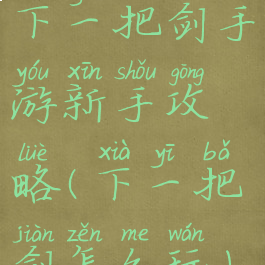 下一把剑手
yóu xīn shǒu gōng
游新手攻
lüè xià yī bǎ
略(下一把
jiàn zěn me wán
剑怎么玩)